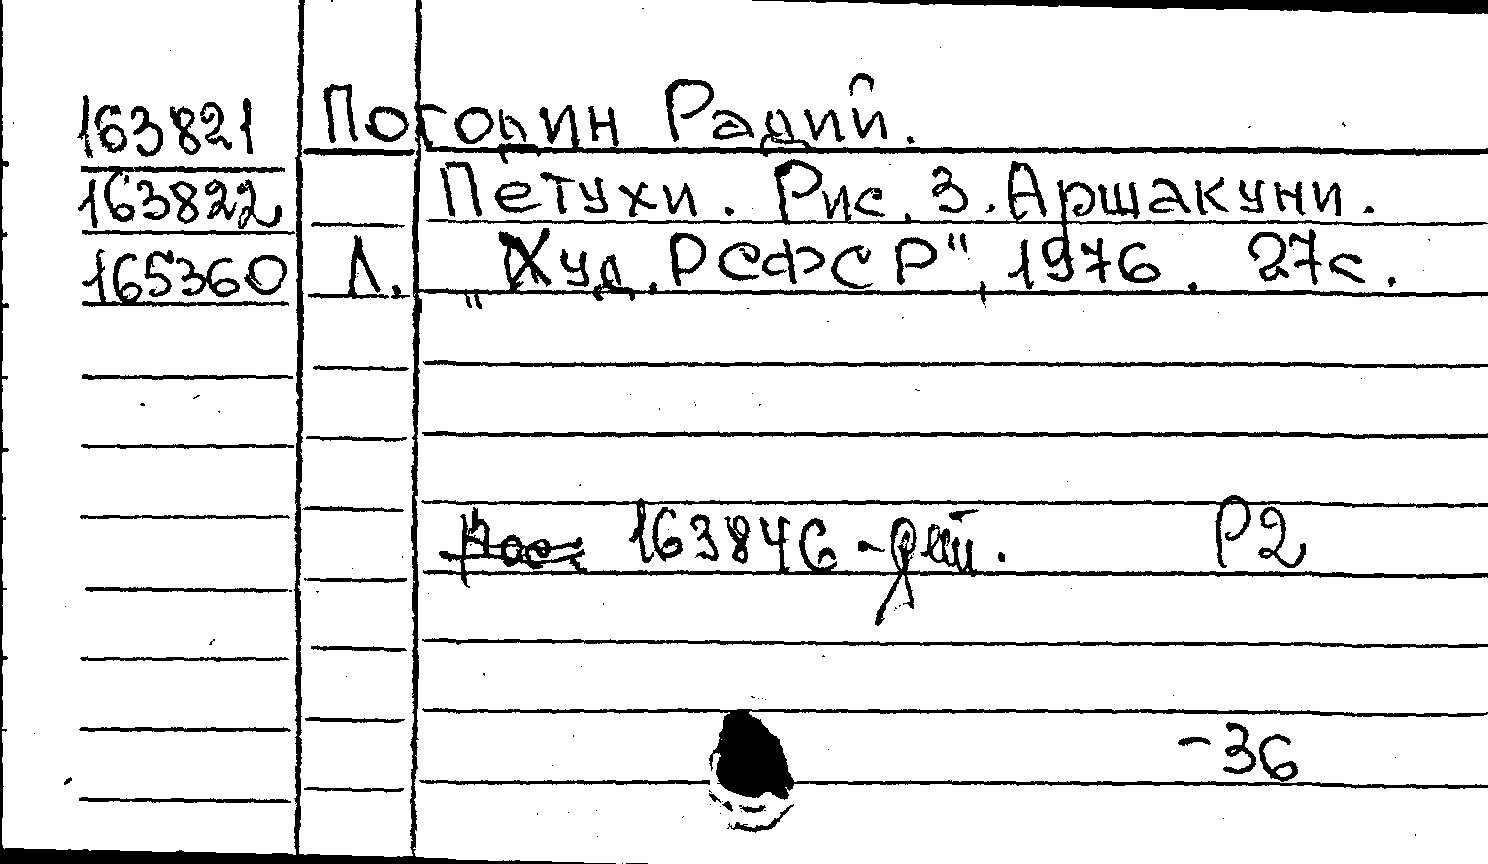 163821 Погодин Радий.
163822 Петухи. Рис. З. Аршакуни.
165360 Л. „Худ. РСФСР", 1976. 27с.
163846 - Р2
-36